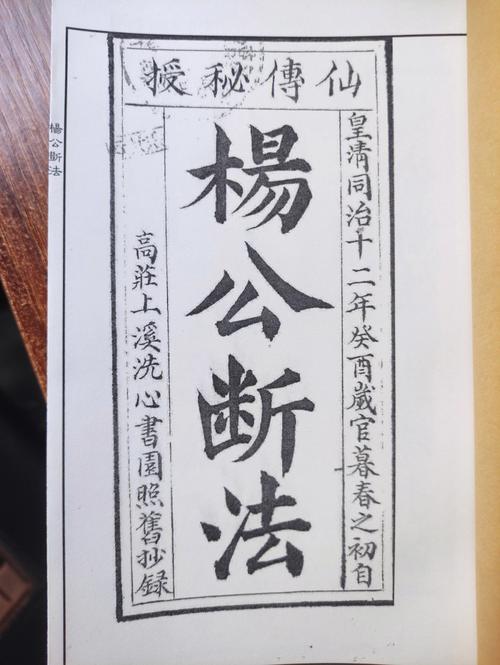 仙傳秘授
皇清同治十二年癸酉歲官暮春之初自
楊公断法
高莊上溪洗心書園照舊抄錄
楊公斷法